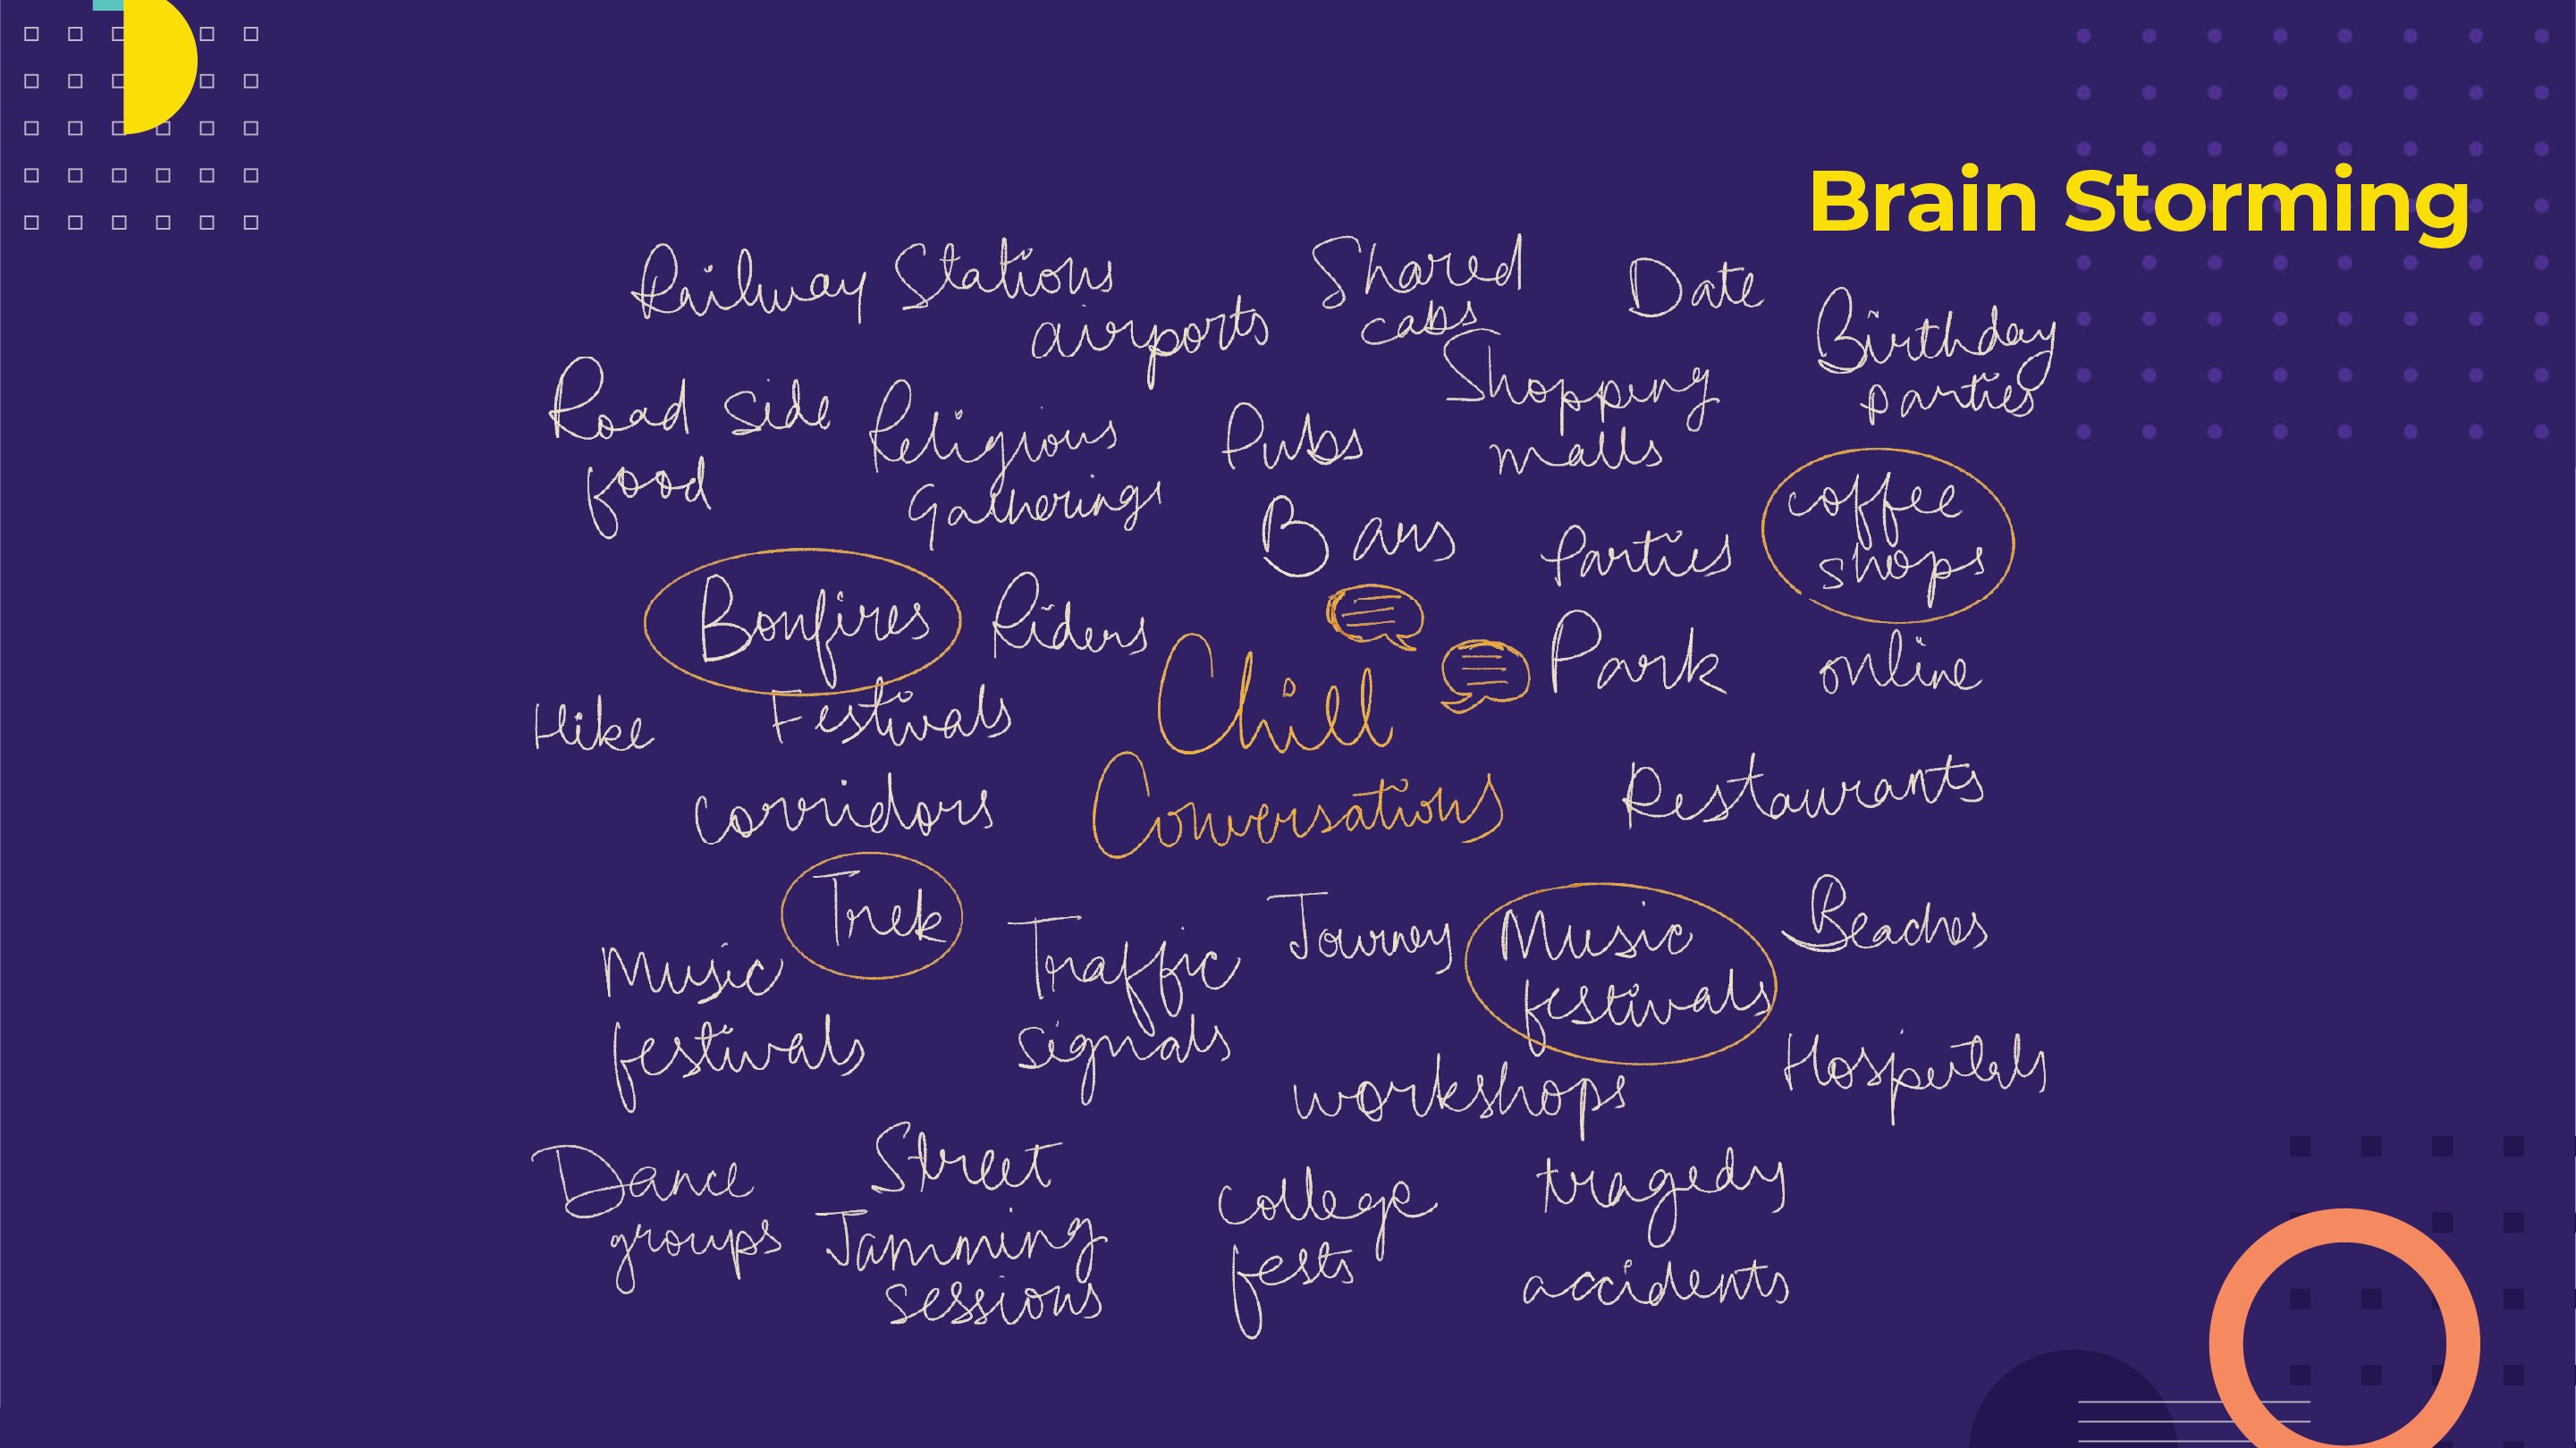 Brain Storming
Railway Stations
airports
Shared
cabs
Date
Birthday
parties
Road side
food
Religious
Gatherings
Pubs
Shopping
malls
Bars
Parties
coffee
shops
Bonfires
Riders
Park
online
Hike
Festivals
Chill
Conversations
corridors
Restaurants
Trek
Music
festivals
Traffic
signals
Journey
Music
festivals
Beaches
workshops
Hospitals
Dance
groups
Street
Jamming
sessions
college
fests
tragedy
accidents